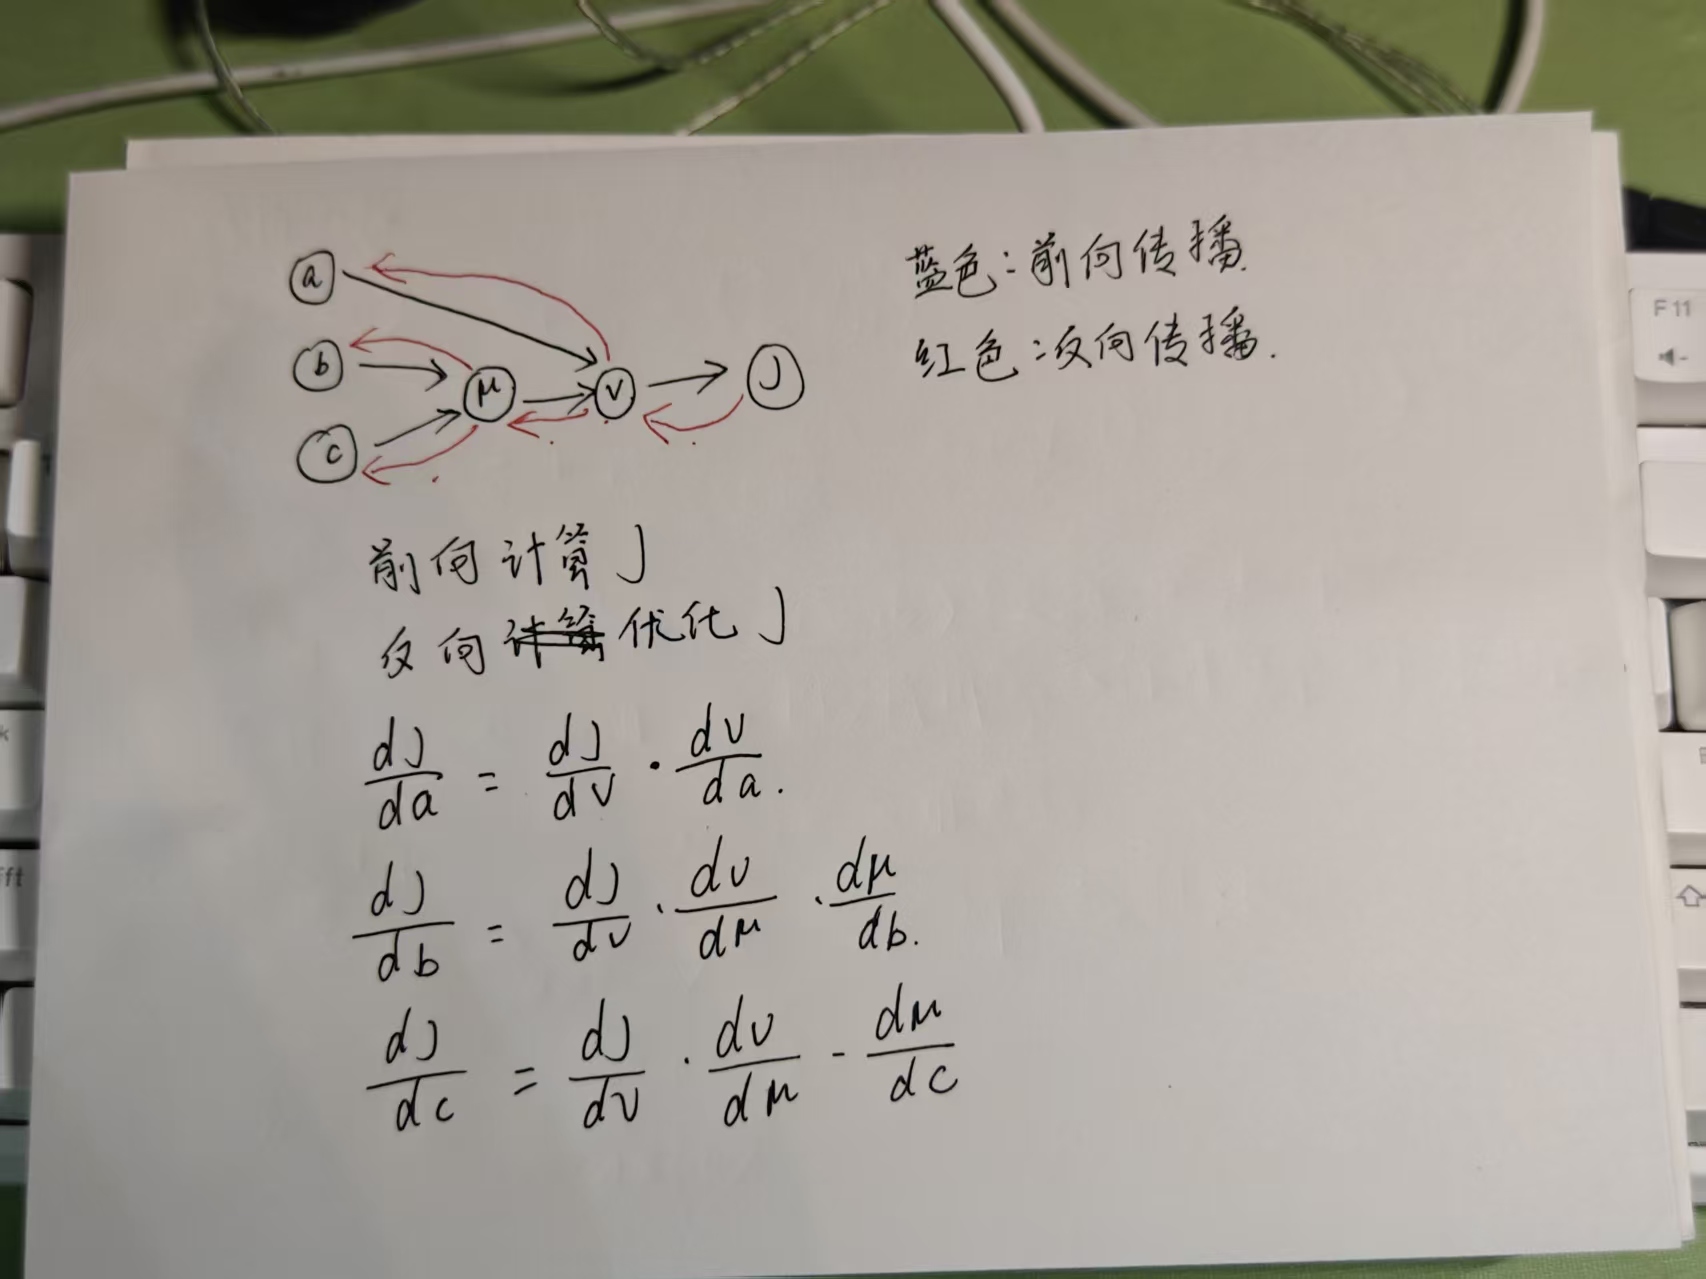 a
b
c
μ
v
J
蓝色:前向传播.
红色:反向传播.
前向计算J
反向计算优化J
dJ/da = dJ/dv · dv/da.
dJ/db = dJ/dv · dv/dμ · dμ/db.
dJ/dc = dJ/dv · dv/dμ - dμ/dc
F11